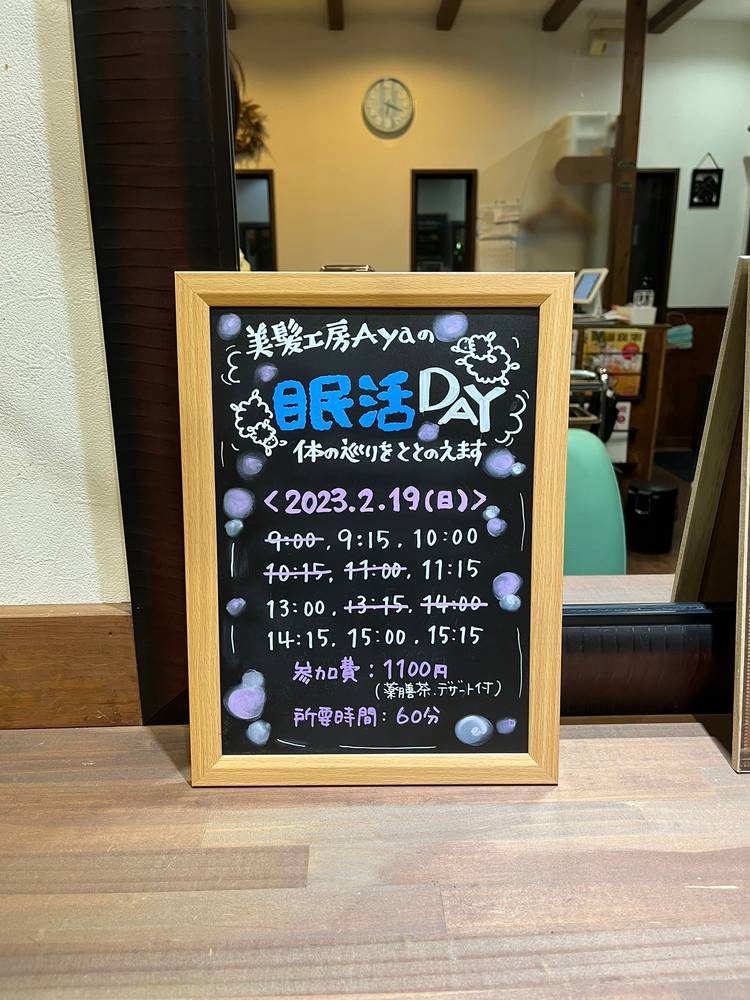 美髪工房Ayaの
眠活DAY
体の巡りをととのえます
<2023.2.19(日)>
9:00, 9:15, 10:00
10:15, 11:00, 11:15
13:00, 13:15, 14:00
14:15, 15:00, 15:15
参加費:1100円
(薬膳茶.デザート付)
所要時間:60分